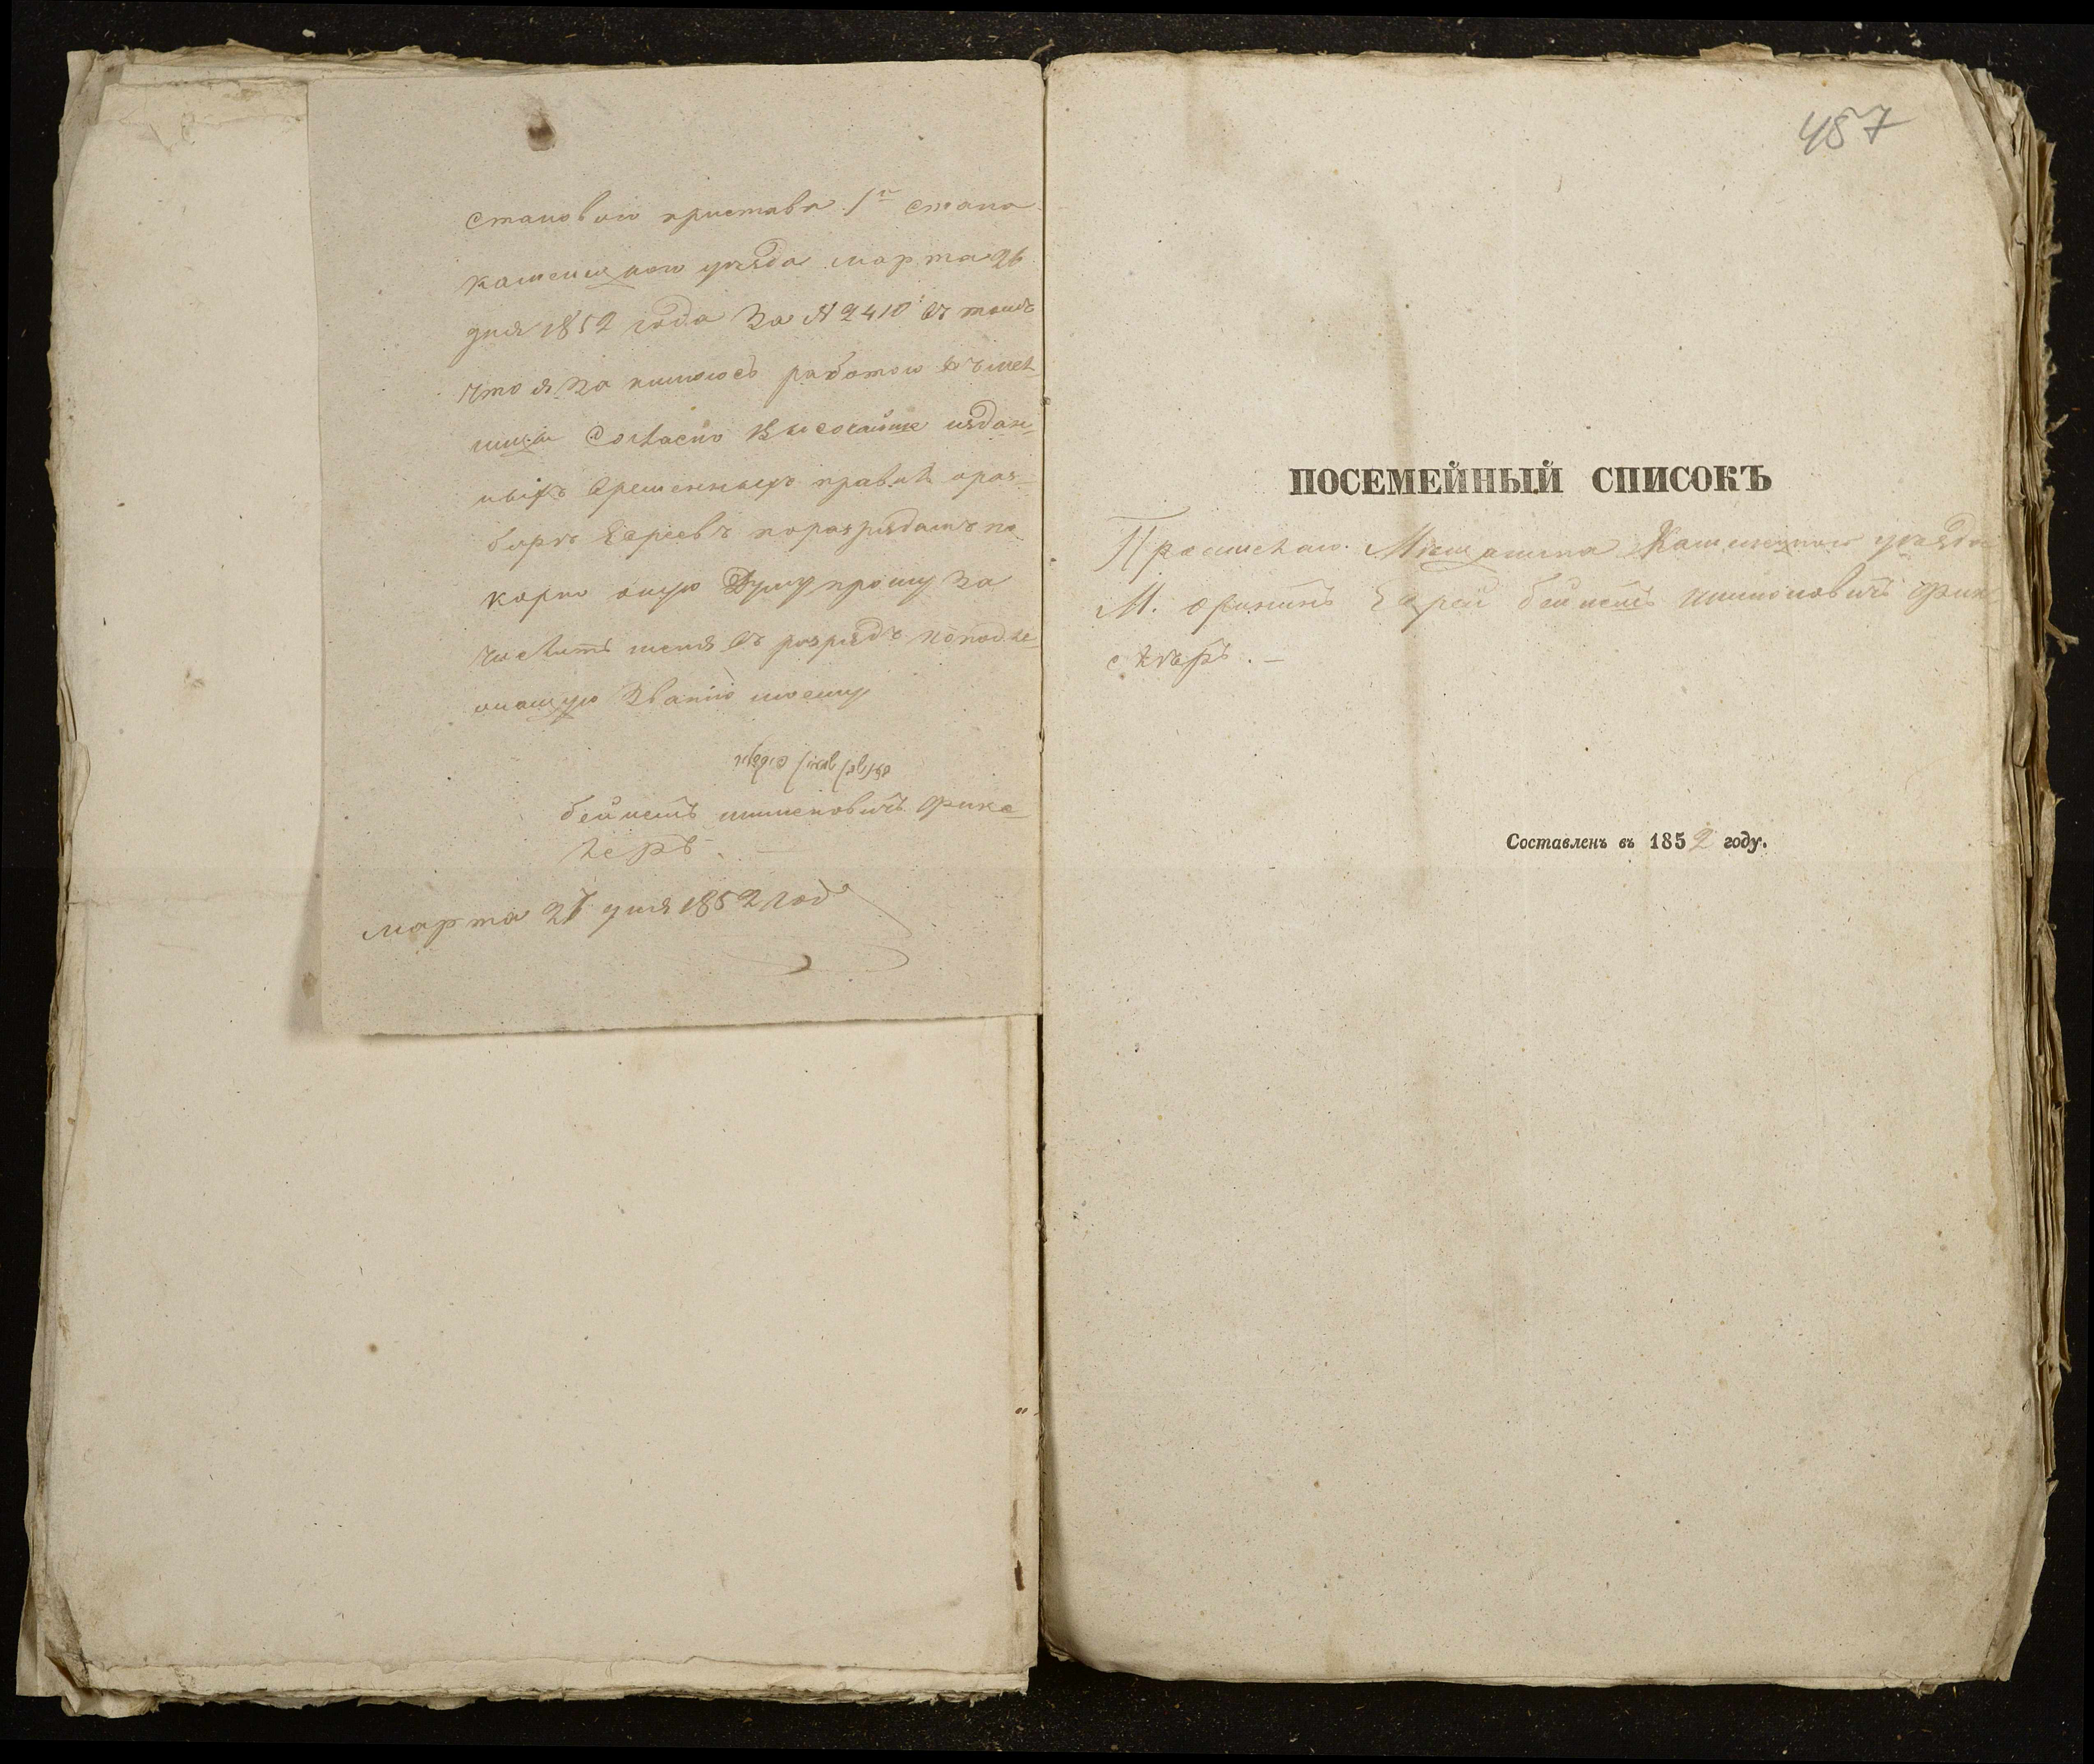 становаго пристава 1го стана
каменецкаго уѣзда марта 26
дня 1852 года за № 2410 в томъ
что я за нимаюсь работою
согласно Высочайше издан-
ныхъ временныхъ правилъ о раз-
борѣ Евреевъ поразрядамъ по
корно оную Думу прошу за
числить меня въ разрядъ подле
жащую званію моему
бейнемъ шимоновичъ Фикс
леръ.
марта 27 дня 1852 года
487
ПОСЕМЕЙНЫЙ СПИСОКЪ
Мѣщанина Каменецкаго уѣзда
М. Еврей бейнемъ шимоновичъ Фикс
слѣръ. —
Составленъ въ 1852 году.